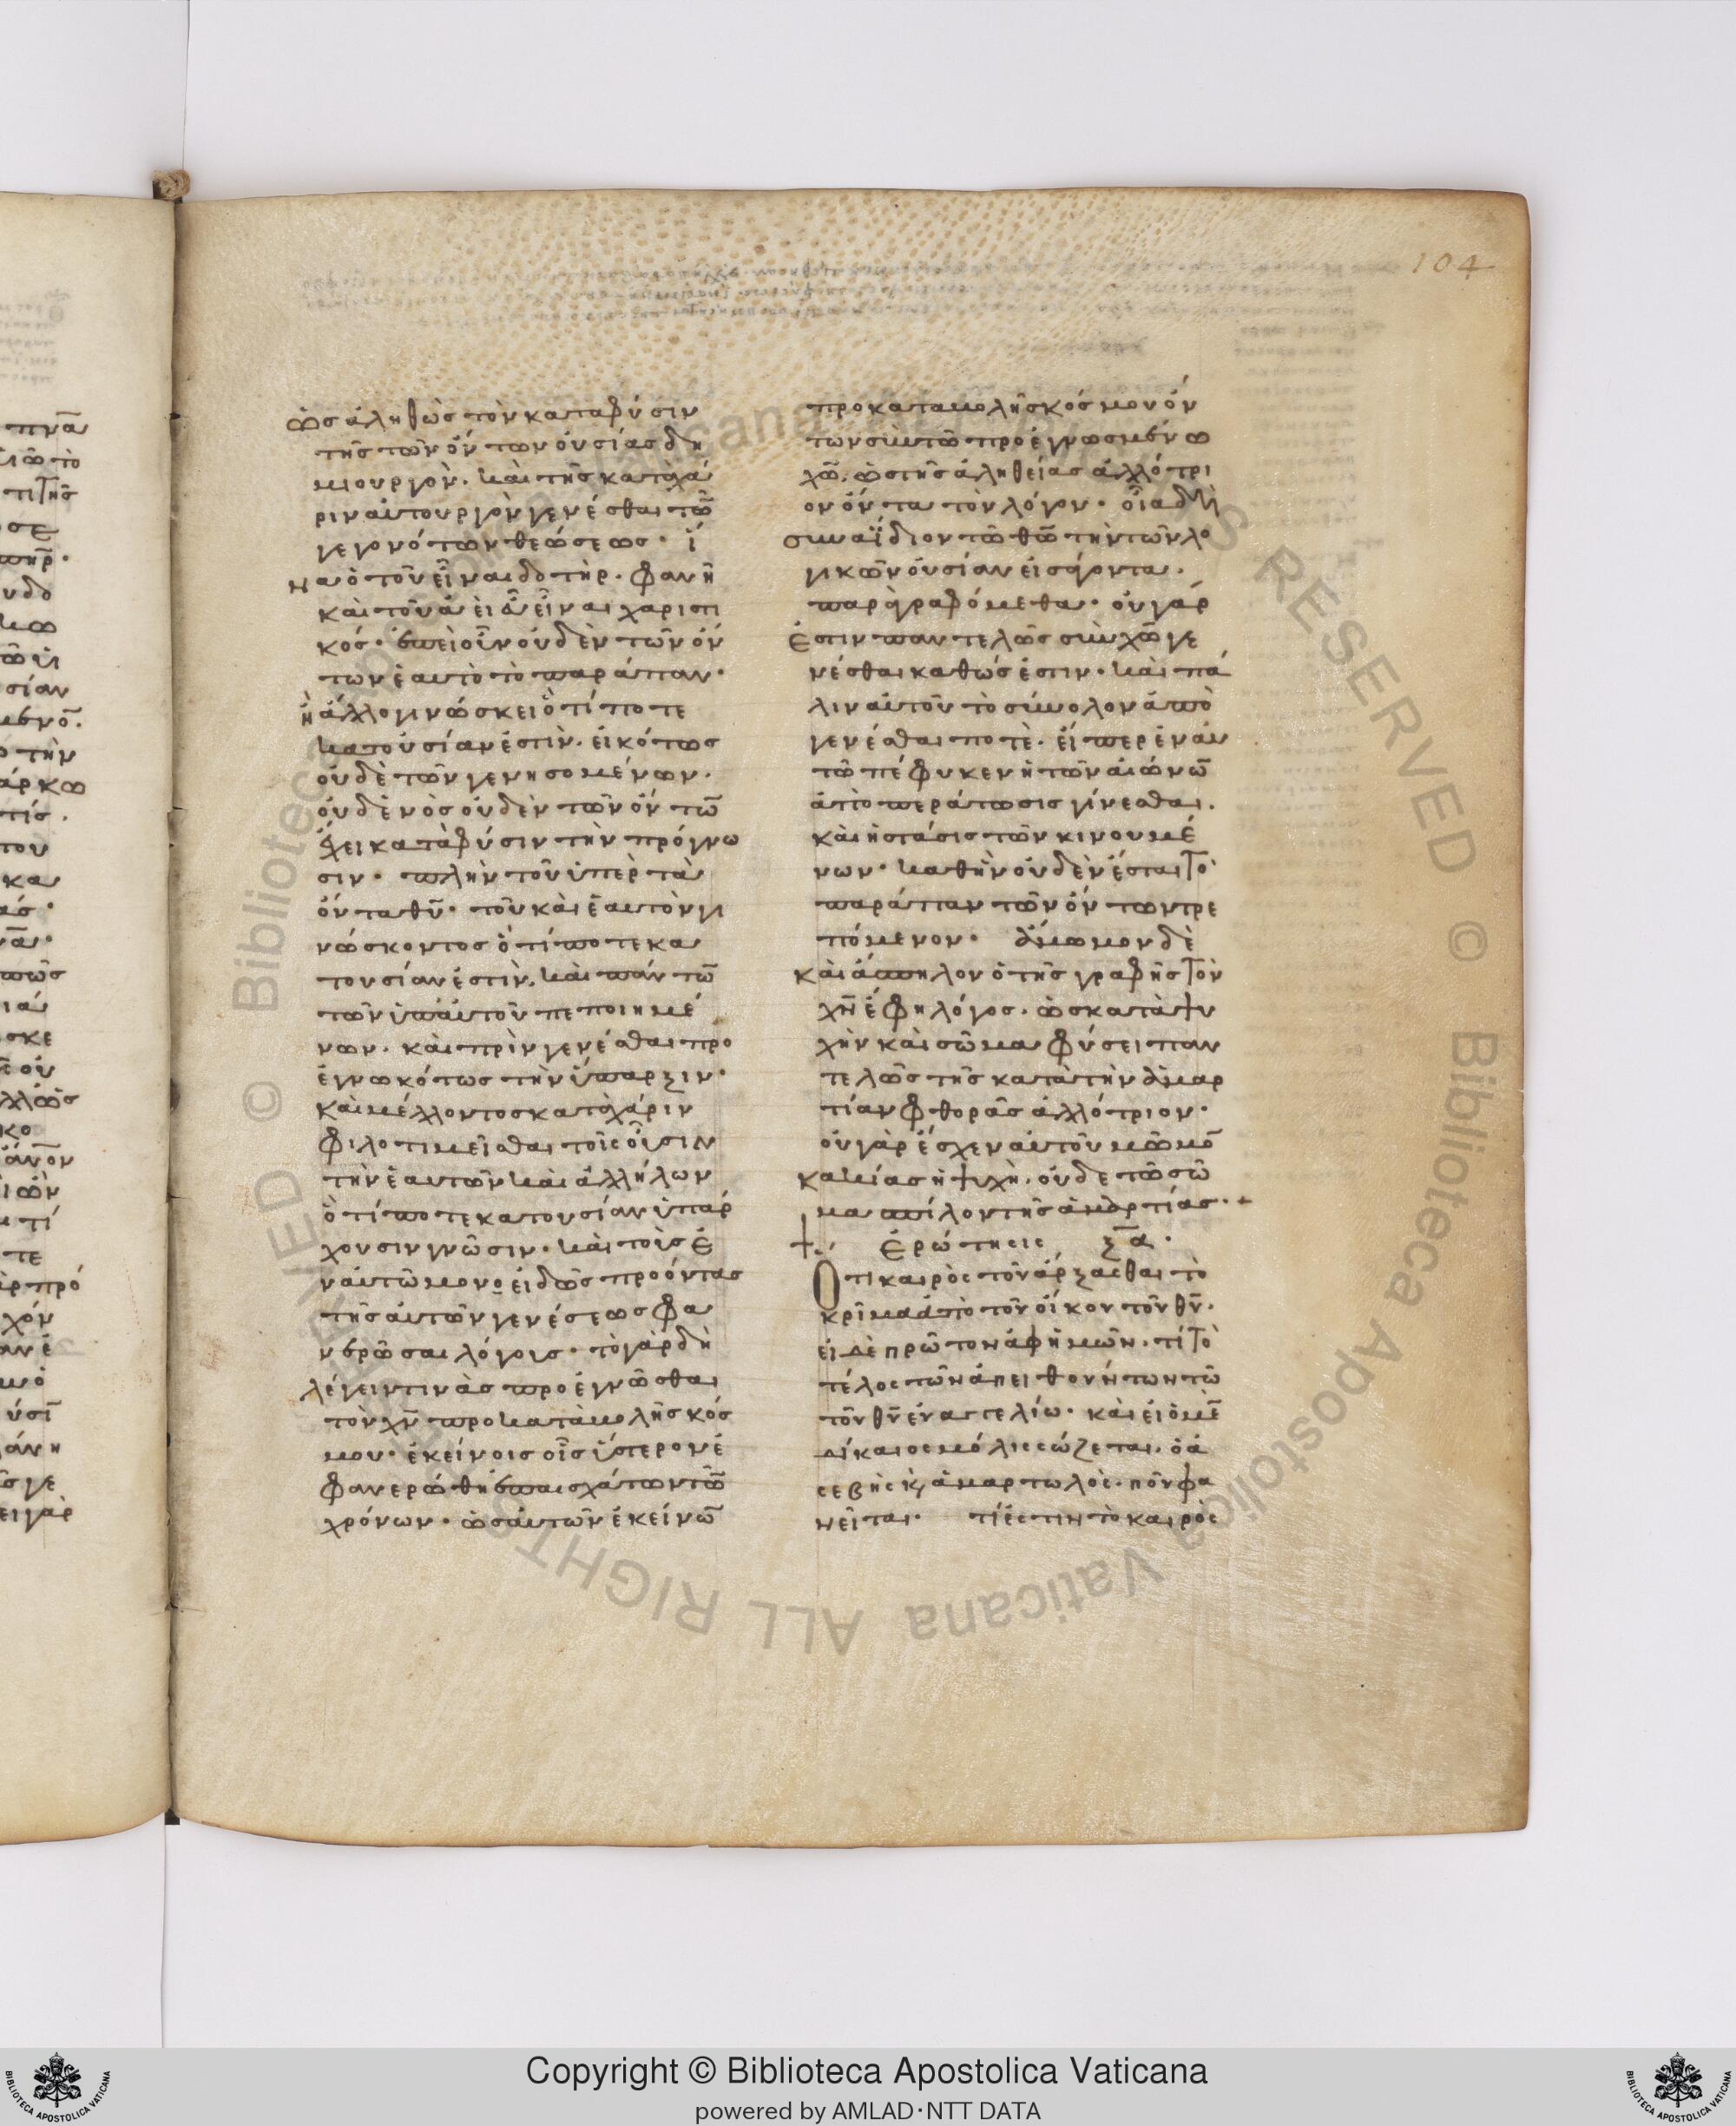 104
ὡς ἀληθῶς τὸν κατα φύσιν
τῆς τῶν ὄντων οὐσίας δη
μιουργὸν. καὶ τῆς κατὰ χά
ριν αὐτουργὸν γενέσθαι τῶ̅
γεγονότων θεώσεως. ἵ
να ὁ τοῦ εἶναι δοτὴρ. φανῆ
καὶ τοῦ ἀεὶ εὖ εἶναι χαριστι
κός. ἐπεὶ οὖν οὐδὲν τῶν ὄν
των ἑαυτὸ τὸ παράπαν.
ἢ ἄλλο γινώσκει ὅ τί ποτε
κατουσίαν ἐστὶν. εἰκότως
οὐδὲ τῶν γενησομένων.
οὐδενὸς οὐδὲν τῶν ὄντω̅
ἔχει κατὰ φύσιν τὴν πρόγνω
σιν. πλὴν τοῦ ὑπὲρ τὰ
ὄντα θυ̅. τοῦ καὶ ἑαυτὸν γι
νώσκοντος ὅ τί ποτε κα
τουσίαν ἐστὶν, καὶ πάντω̅
τῶν ὑπ' αὐτοῦ πεποιημέ
νων. καὶ πρὶν γενέσθαι προ
εγνωκότως τὴν ὕπαρξιν.
καὶ μέλλοντος κατὰ χάριν
φιλοτιμεῖσθαι τοῖς οὖσιν
τὴν ἑαυτῶν καὶ ἀλλήλων
ὅ τί ποτε κατουσίαν ὑπάρ
χουσιν γνῶσιν. καὶ τοὺς ἐ
ν αὐτῶ μονοειδῶς προόντας
τῆς αὐτῶν γενέσεως φα
νερῶσαι λόγους. τὸ γὰρ δὴ
λέγειν τινὰς προεγνῶσθαι
τὸν χν̅ πρὸ καταβολῆς κόσ
μου. ἐκείνοις οἷς ὕστερον ἐ
φανερώθη ἐπ' ἐσχάτων τῶ̅
χρόνων. ὡς αὐτῶν ἐκείνω̅
προ καταβολῆς κόσμου ὄν
των σὺν τῶ προεγνωσμένω
χω̅. ὡς τῆς ἀληθείας ἀλλότρι
ον ὄντα τὸν λόγον. οἷα δὴ
συναΐδιον τῶ θω̅ τὴν τῶν λο
γικῶν οὐσίαν εἰσάγοντα.
παραγραφόμεθα. οὐ γάρ
ἐστιν παντελῶς σὺν χω̅ γε
νέσθαι καθώς ἐστιν. καὶ πά
λιν αὐτοῦ τὸ σύνολον ἀπὸ
γενέσθαι ποτὲ. εἴπερ ἐν αὐ
τῶ πέφυκεν ἡ τῶν αἰώνω̅
ἀποπεράτωσις γίνεσθαι.
καὶ ἡ στάσις τῶν κινουμέ
νων. καθ' ἣν οὐδὲν ἔσται τὸ
παράπαν τῶν ὄντων τρε
πόμενον. ἄμωμον δὲ
καὶ ἄσπιλον ὁ τῆς γραφῆς τὸν
χν̅ ἔφη λόγος. ὡς κατὰ ψυ
χὴν καὶ σῶμα φύσει παν
τελῶς τῆς κατὰ τὴν ἁμαρ
τίαν φθορᾶς ἀλλότριον.
οὐ γὰρ ἔσχεν αὐτοῦ μῶμο̅
κακίας ἡ ψυχὴ. οὐδε τῶ σῶ
μα σπίλον τῆς ἁμαρτίας.
Ἐρώτησις ξα̅.
Ὅτι καιρὸς τοῦ ἄρξασθαι τὸ
κρῖμα ἀπὸ τοῦ οἴκου τοῦ θυ̅.
εἰ δὲ πρῶτον ἀφ ἡμῶν. τί τὸ
τέλος τῶν ἀπειθούντων τῶ
τοῦ θυ̅ εὐαγγελίω. καὶ εἰ ὁ με̅
δίκαιος μόλις σώζεται. ὁ ἀ
σεβὴς κ, ἁμαρτωλὸς. ποῦ φα
νεῖται. τί ἐστιν τὸ καιρὸς
Copyright © Biblioteca Apostolica Vaticana
powered by AMLAD·NTT DATA